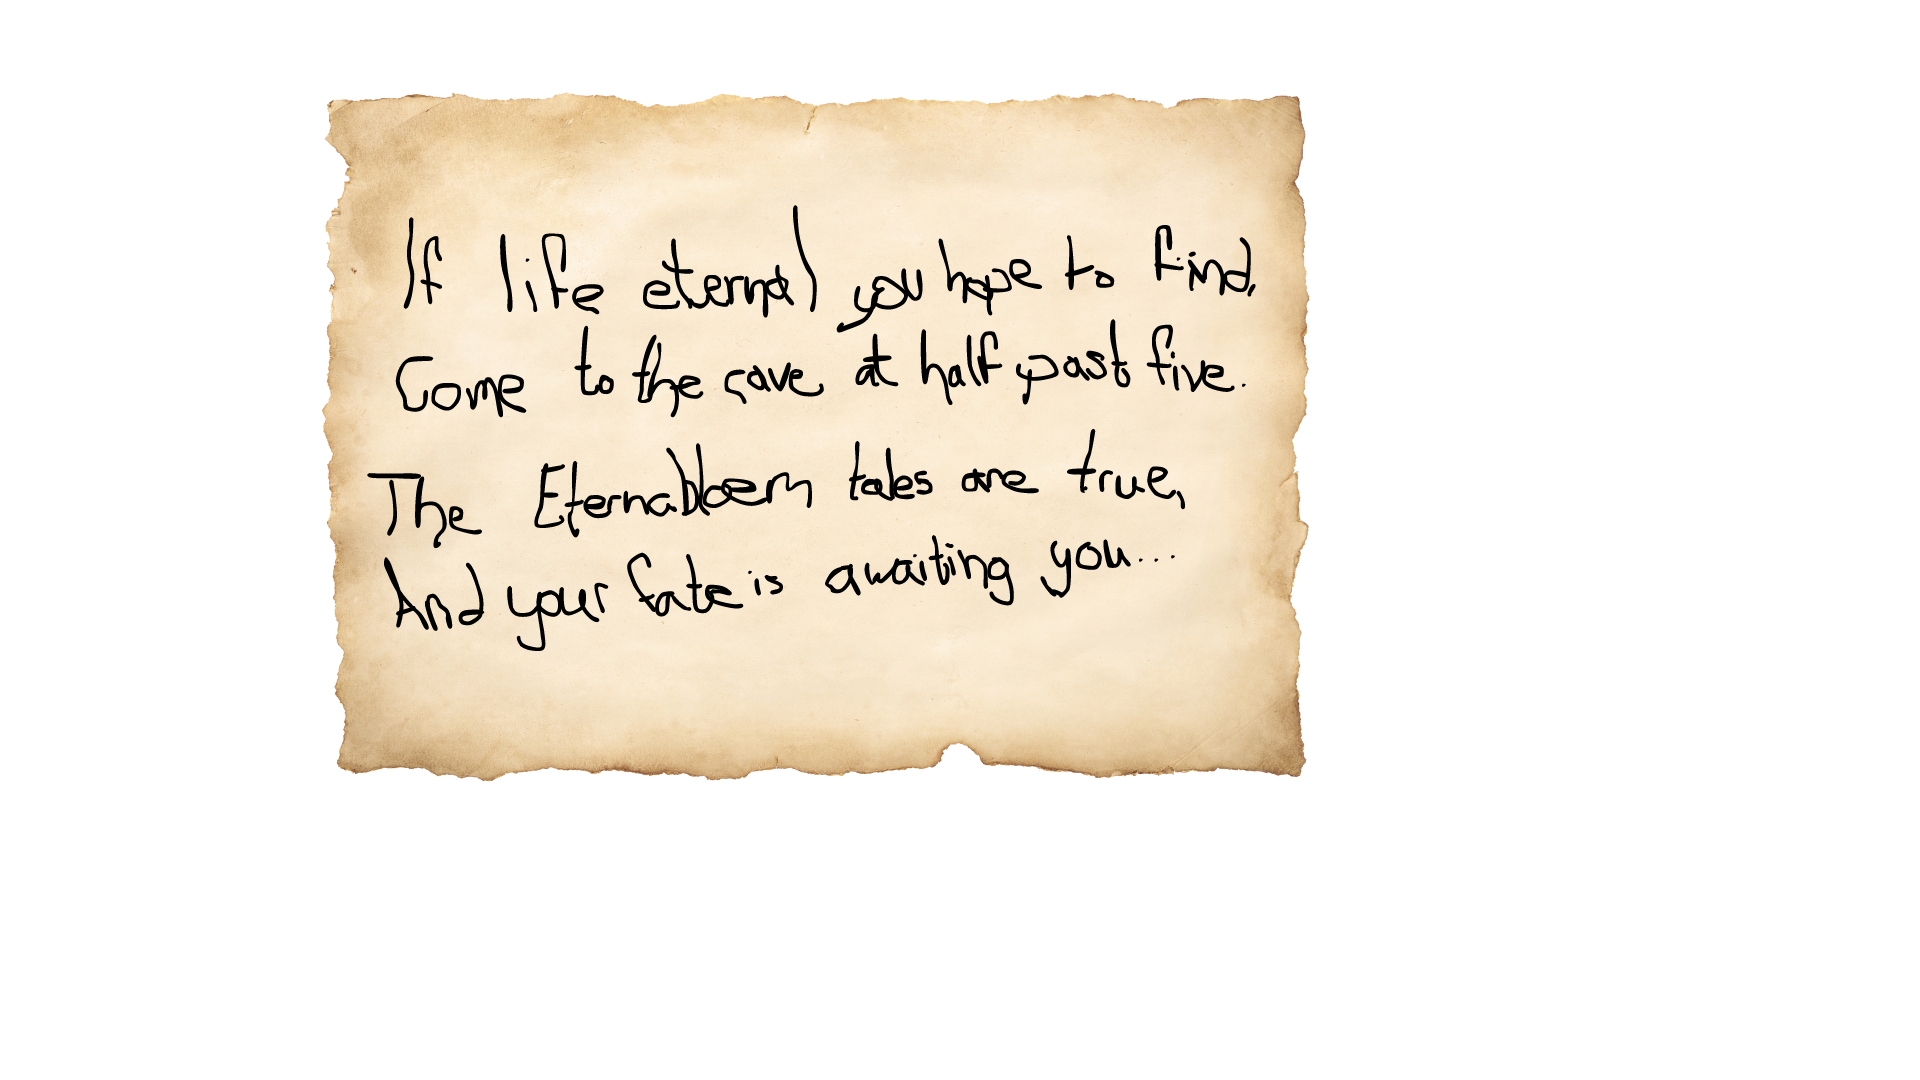 If life eternal you hope to find,
Come to the cave at half past five.
The Eternabloem tales are true,
And your fate is awaiting you...